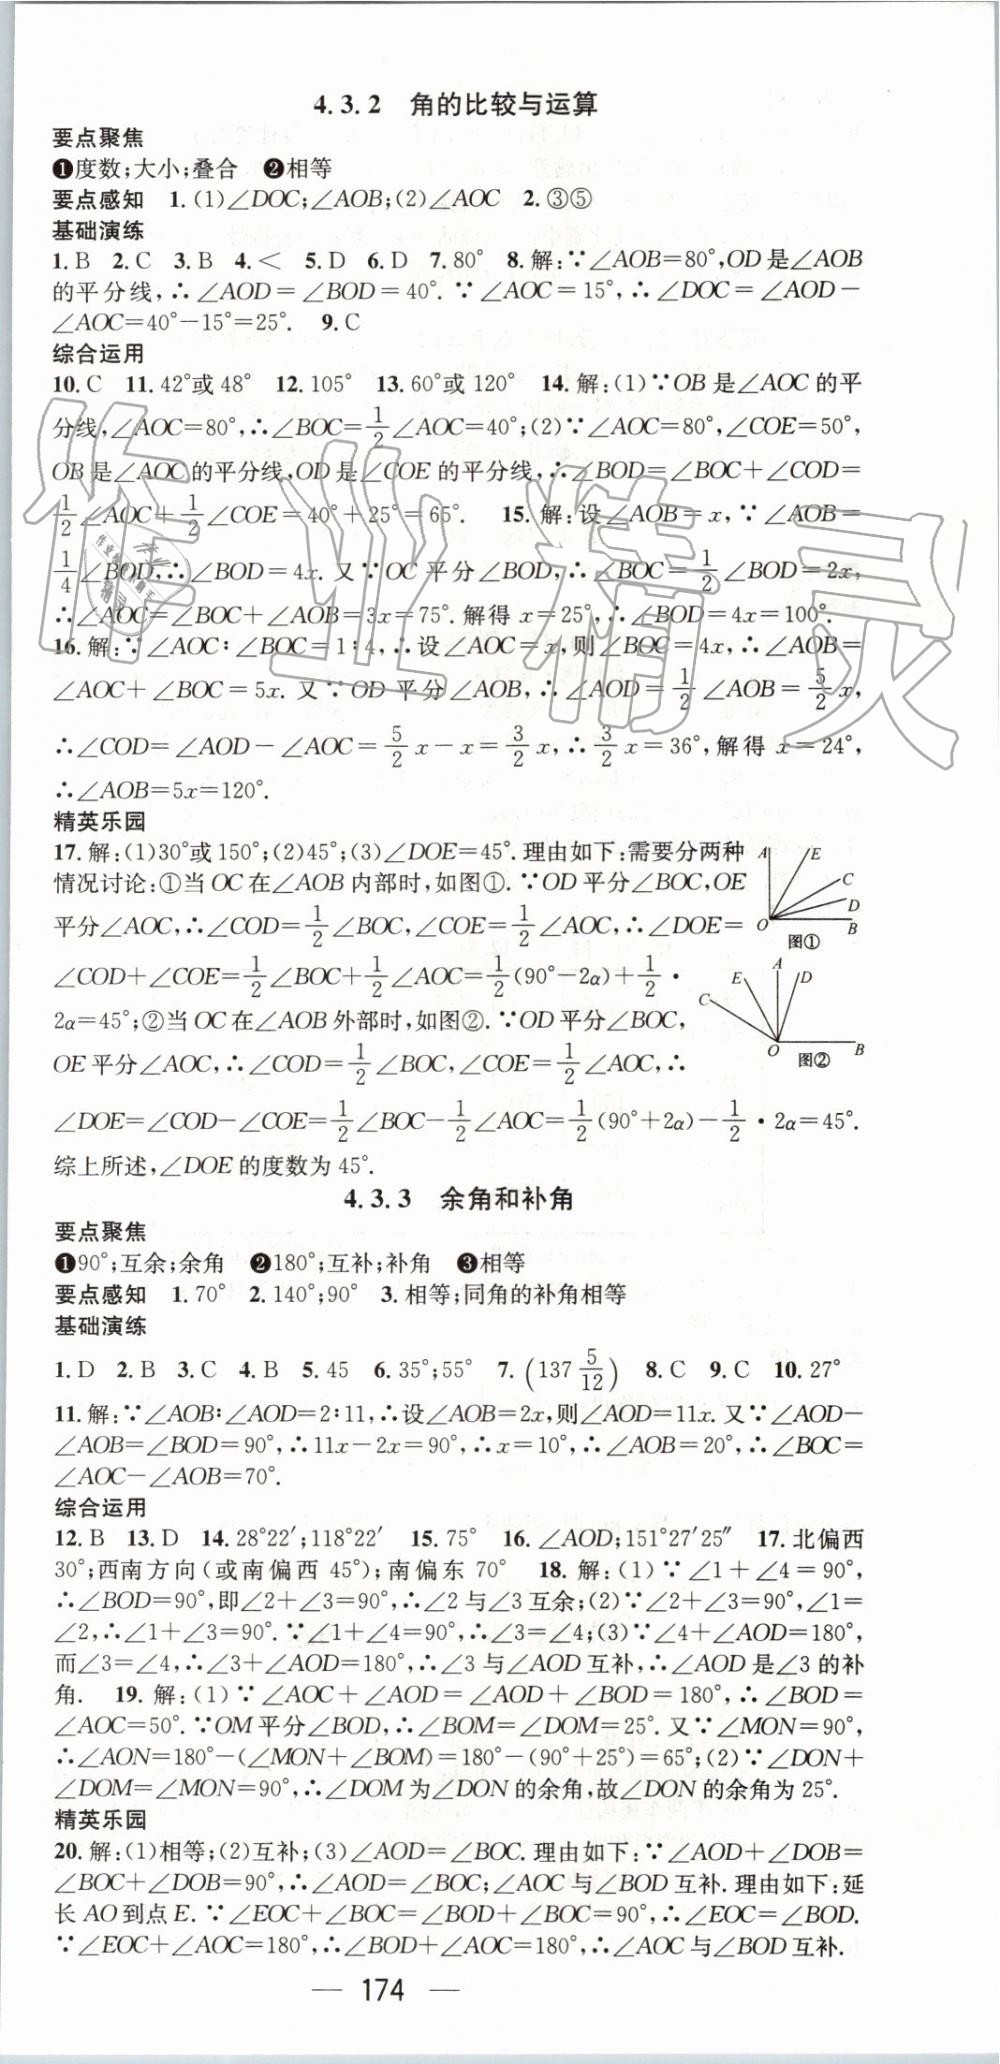 4.3.2 角的比较与运算
要点聚焦
❶度数;大小;叠合 ❷相等
要点感知 1.(1)∠DOC;∠AOB;(2)∠AOC 2.③⑤
基础演练
1.B 2.C 3.B 4.< 5.D 6.D 7.80° 8.解:∵∠AOB=80°,OD是∠AOB
的平分线,∴∠AOD=∠BOD=40°.∵∠AOC=15°,∴∠DOC=∠AOD-
∠AOC=40°-15°=25°. 9.C
综合运用
10.C 11.42°或48° 12.105° 13.60°或120° 14.解:(1)∵OB是∠AOC的平
分线,∠AOC=80°,∴∠BOC=1/2∠AOC=40°;(2)∵∠AOC=80°,∠COE=50°,
OB是∠AOC的平分线,OD是∠COE的平分线,∴∠BOD=∠BOC+∠COD=
1/2∠AOC+1/2∠COE=40°+25°=65°. 15.解:设∠AOB=x,∵∠AOB=
1/4∠BOD,∴∠BOD=4x.又∵OC平分∠BOD,∴∠BOC=1/2∠BOD=2x,
∴∠AOC=∠BOC+∠AOB=3x=75°.解得x=25°,∴∠BOD=4x=100°.
16.解:∵∠AOC∶∠BOC=1∶4,∴设∠AOC=x,则∠BOC=4x,∴∠AOB=
∠AOC+∠BOC=5x.又∵OD平分∠AOB,∴∠AOD=1/2∠AOB=5/2x,
∴∠COD=∠AOD-∠AOC=5/2x-x=3/2x,∴3/2x=36°,解得x=24°,
∴∠AOB=5x=120°.
精英乐园
17.解:(1)30°或150°;(2)45°;(3)∠DOE=45°.理由如下:需要分两种
情况讨论:①当OC在∠AOB内部时,如图①.∵OD平分∠BOC,OE
平分∠AOC,∴∠COD=1/2∠BOC,∠COE=1/2∠AOC,∴∠DOE=
∠COD+∠COE=1/2∠BOC+1/2∠AOC=1/2(90°-2α)+1/2·
2α=45°;②当OC在∠AOB外部时,如图②.∵OD平分∠BOC,
OE平分∠AOC,∴∠COD=1/2∠BOC,∠COE=1/2∠AOC,∴
∠DOE=∠COD-∠COE=1/2∠BOC-1/2∠AOC=1/2(90°+2α)-1/2·2α=45°.
综上所述,∠DOE的度数为45°.
A E C D O B
图①
A E D C O B
图②
4.3.3 余角和补角
要点聚焦
❶90°;互余;余角 ❷180°;互补;补角 ❸相等
要点感知 1.70° 2.140°;90° 3.相等;同角的补角相等
基础演练
1.D 2.B 3.C 4.B 5.45 6.35°;55° 7.(137 5/12) 8.C 9.C 10.27°
11.解:∵∠AOB∶∠AOD=2∶11,∴设∠AOB=2x,则∠AOD=11x.又∵∠AOD-
∠AOB=∠BOD=90°,∴11x-2x=90°,∴x=10°,∴∠AOB=20°,∴∠BOC=
∠AOC-∠AOB=70°.
综合运用
12.B 13.D 14.28°22′;118°22′ 15.75° 16.∠AOD;151°27′25″ 17.北偏西
30°;西南方向(或南偏西45°);南偏东70° 18.解:(1)∵∠1+∠4=90°,
∴∠BOD=90°,即∠2+∠3=90°,∴∠2与∠3互余;(2)∵∠2+∠3=90°,∠1=
∠2,∴∠1+∠3=90°.∵∠1+∠4=90°,∴∠3=∠4;(3)∵∠4+∠AOD=180°,
而∠3=∠4,∴∠3+∠AOD=180°,∴∠3与∠AOD互补,∴∠AOD是∠3的补
角. 19.解:(1)∵∠AOC+∠AOD=∠AOD+∠BOD=180°,∴∠BOD=
∠AOC=50°.∵OM平分∠BOD,∴∠BOM=∠DOM=25°.又∵∠MON=90°,
∴∠AON=180°-(∠MON+∠BOM)=180°-(90°+25°)=65°;(2)∵∠DON+
∠DOM=∠MON=90°,∴∠DOM为∠DON的余角,故∠DON的余角为25°.
精英乐园
20.解:(1)相等;(2)互补;(3)∠AOD=∠BOC.理由如下:∵∠AOD+∠DOB=
∠BOC+∠DOB=90°,∴∠AOD=∠BOC;∠AOC与∠BOD互补.理由如下:延
长AO到点E.∵∠EOC+∠BOC=∠BOD+∠BOC=90°,∴∠EOC=∠BOD.
∵∠EOC+∠AOC=180°,∴∠BOD+∠AOC=180°,∴∠AOC与∠BOD互补.
— 174 —
作业精灵